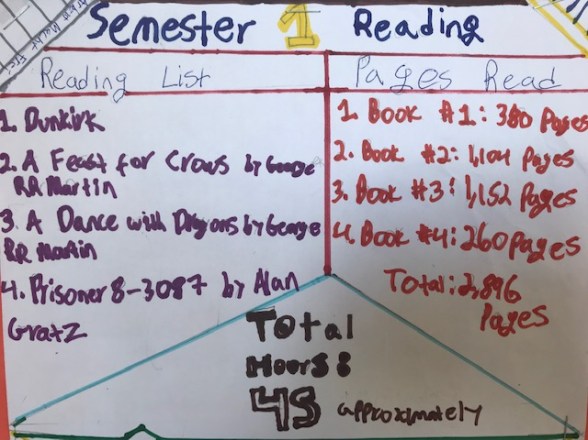 Semester 1 Reading
Reading List
1. Dunkirk
2. A Feast for Crows by George
RR Martin
3. A Dance with Dragons by George
RR Martin
4. Prisoner B-3087 by Alan
Gratz
Pages Read
1. Book #1: 380 Pages
2. Book #2: 1,104 Pages
3. Book #3: 1,152 Pages
4. Book #4: 260 Pages
Total: 2,896
Pages
Total
Hours:
45 approximately